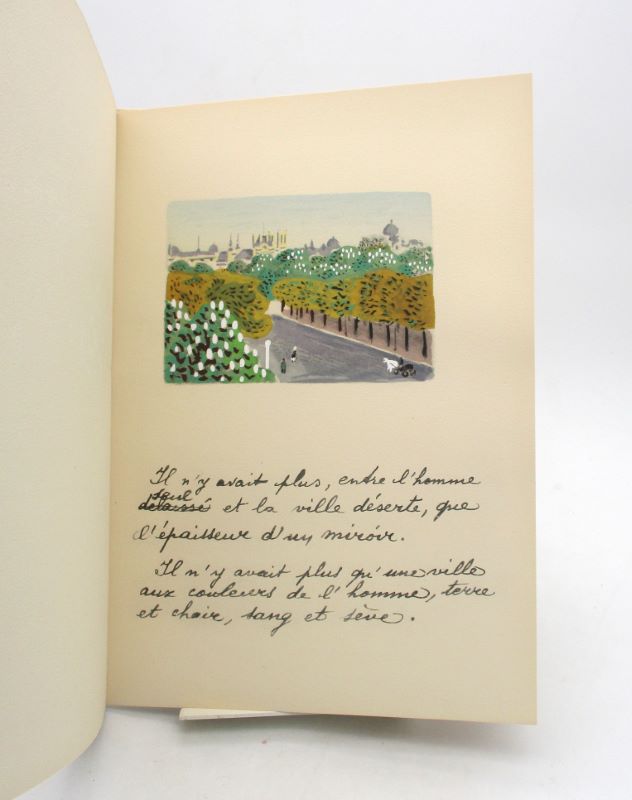 Il n'y avait plus, entre l'homme
seul
délaissé et la ville déserte, que
l'épaisseur d'un miroir.
Il n'y avait plus qu'une ville
aux couleurs de l'homme, terre
et chair, sang et sève.